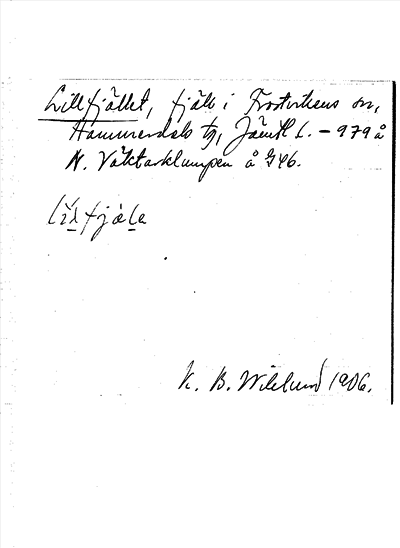 Lillfjället, fjäll i Frostvikens sn,
Hammerdals tg, Jämtl L. – 979 å
N. Väktarklumpen å G46.
lil fjäle
K. B. Wiklund 1906.